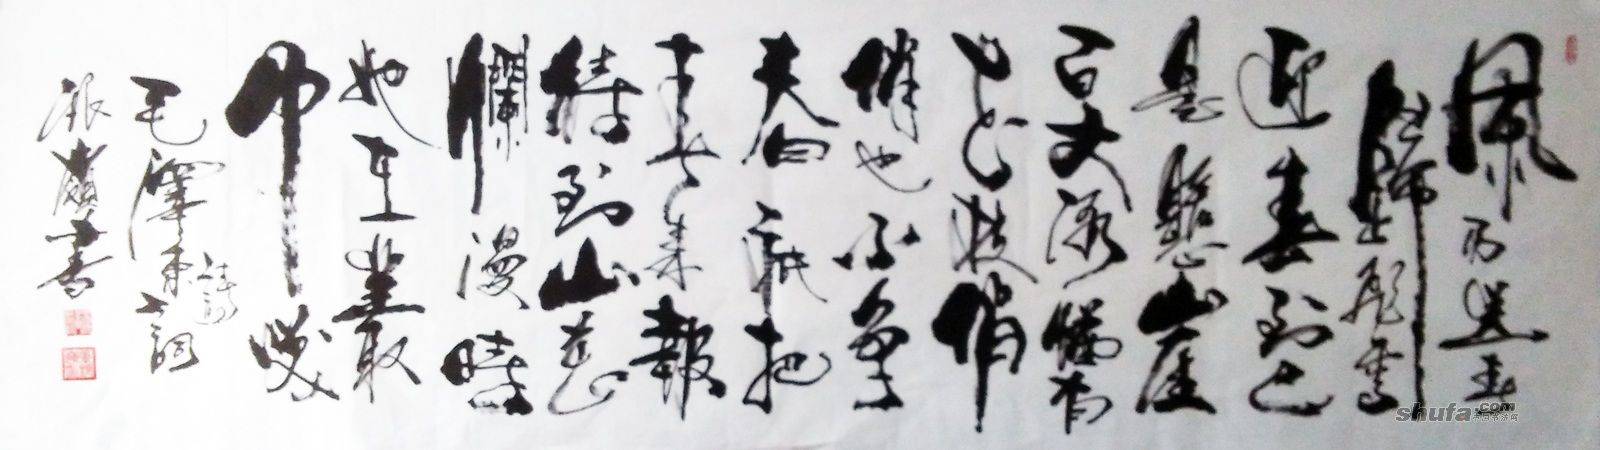 風雨送春
歸飛雪
迎春到已
是懸崖
百丈冰猶有
花枝俏
俏也不爭
春只把
春来報
待到山花
爛漫時
她在叢
中笑
毛澤東詞
書
shufa.com